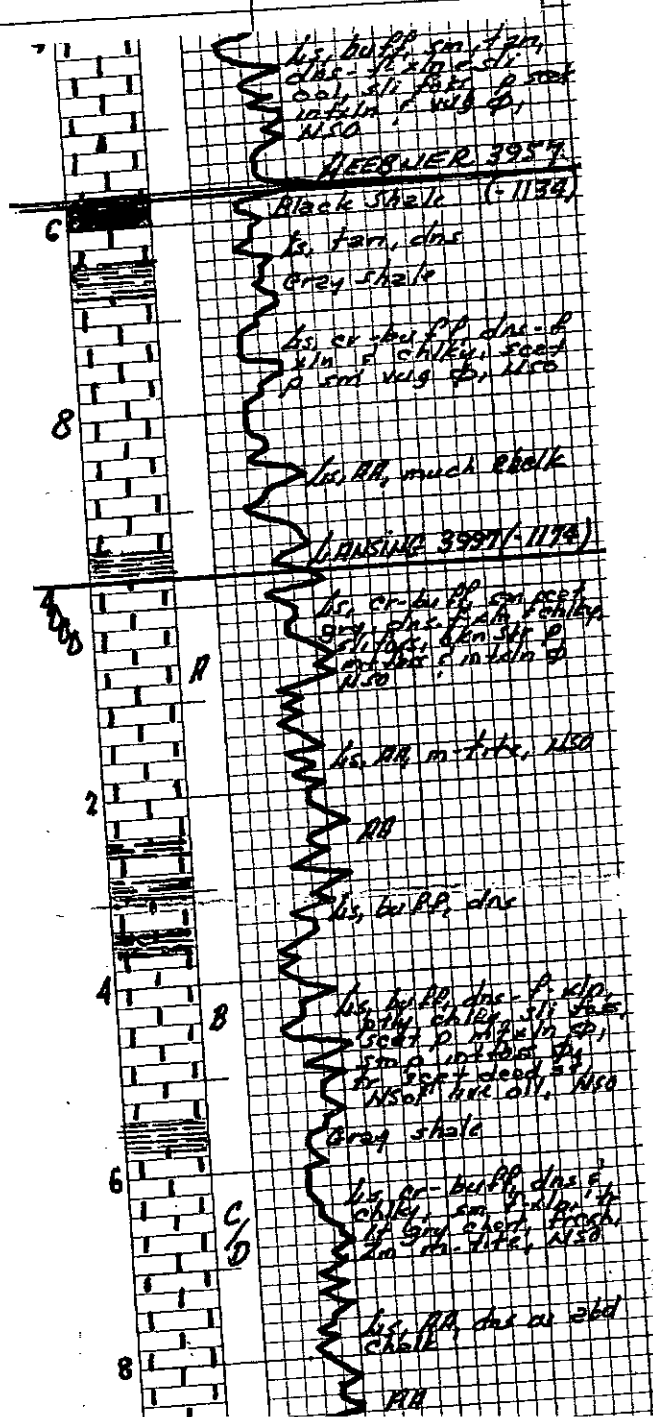 Ls, buff, sm, tan,
dns - f xln & sli
ool, sli foss, p scat
intxln & vug Φ,
NSO
HEEBNER 3957
(-1134)
Black Shale
6
Ls, tan, dns
Gray shale
Ls, cr-buff, dns-f
xln & chlky, scat
p sm vug Φ, NSO
8
Ls, AA, much chalk
LANSING 3997 (-1174)
4000
Ls, cr-buff, sm scat
gry, dns-f xln, chlky,
sli foss, p
intxln Φ
NSO
A
Ls, AA, m-tite, NSO
2
AA
Ls, buff, dns
4
B
Ls, buff, dns-f xln,
ptly chlky, sli foss,
scat p intxln Φ,
sm p intfoss Φ,
tr scat dead st,
NSO/ live oil, NSO
Gray shale
6
C/D
Ls, cr-buff, dns &
chlky, sm f-xln, tr
lt gry chert, fresh,
Zn m-tite, NSO
Ls, AA, dns w abd
chalk
8
AA